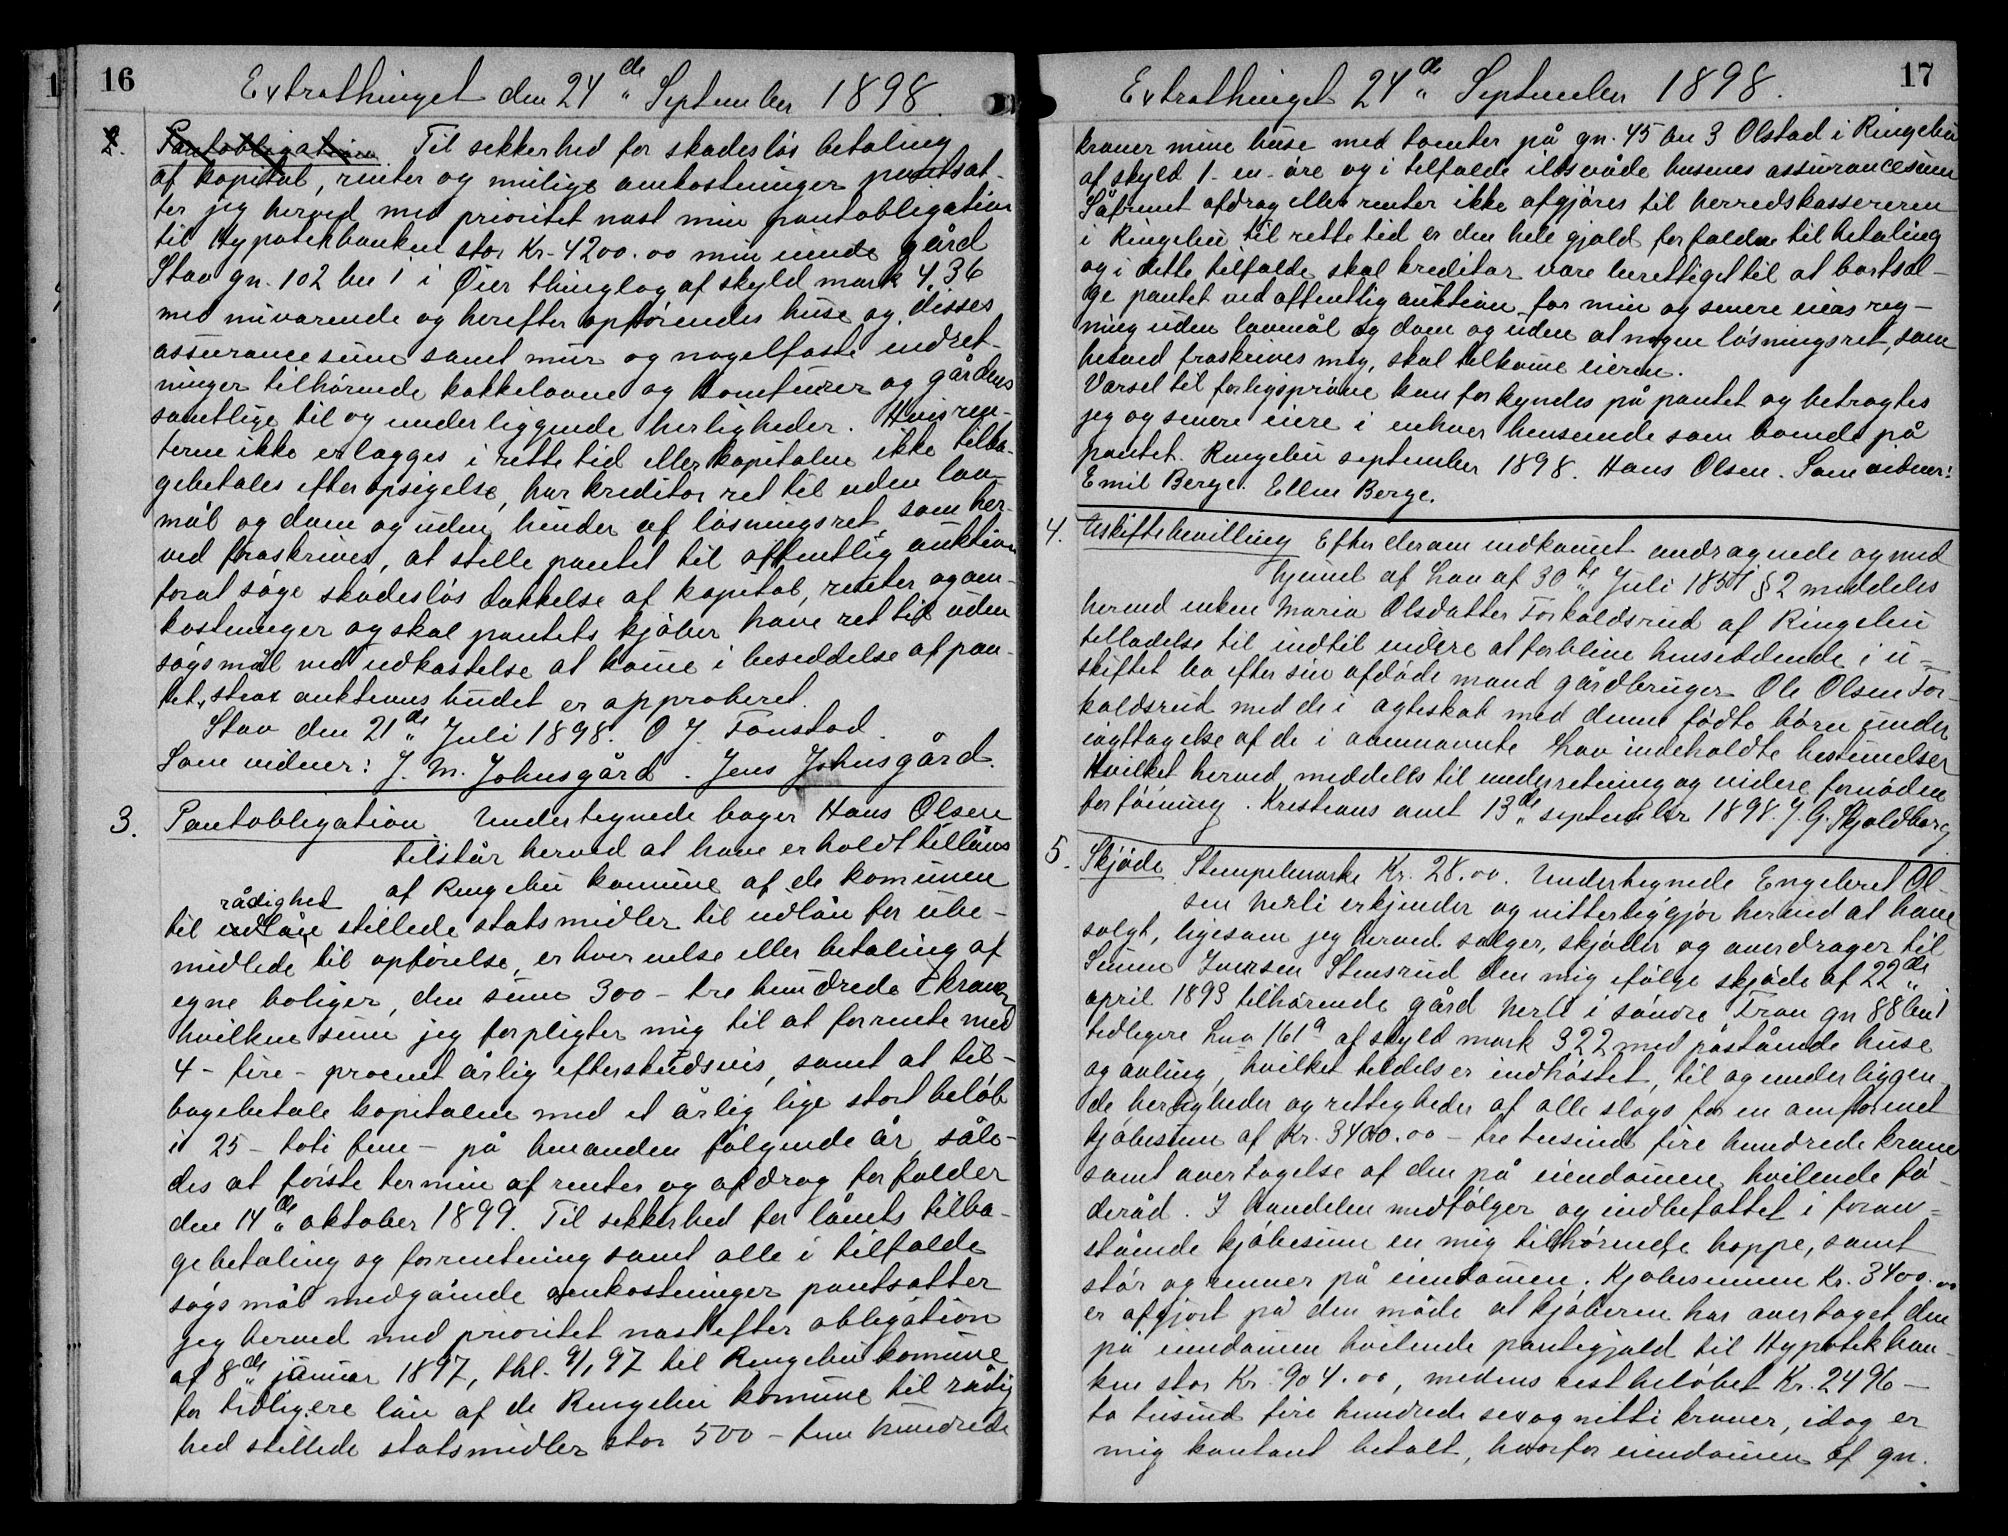 16
Extrathinget den 24de September 1898.
2. Pantobligation Til sekkerhed for skadesløs betaling
af kapital, renter og mulige omkostninger pantsæt-
ter jeg herved med prioritet næst min pantobligation
til Hypotekbanken stor Kr. 4200.00 min eiende gård
Stav gn. 102 bn 1 i Øier thinglag af skyld mark 4,36
med nuværende og herefter opførendes huse og disses
assurancesum samt mur og nagelfaste indret-
ninger tilhørende kakkelovne og komfurer og gårdens
samtlige til og underliggende herligheder. Hvis ren-
terne ikke erlægges i rette tid eller kapitalen ikke tilba-
gebetales efter opsigelse, har kreditor ret til uden lov-
mål og dom og uden hinder af løsningsret, som her-
ved fraskrives, at stille pantet til offentlig auktion
forat søge skadesløs dækkelse af kapital, renter og om-
kostninger og skal pantets kjøber have ret til uden
søgsmål ved udkastelse at komme i besiddelse af pan-
tet, strax auktions budet er approberet.
Stav den 21de Juli 1898. O J. Fonstad.
Som vidner: J. M. Johnsgård. Jens Johnsgård.
3. Pantobligation Undertegnede bager Hans Olsen
tilstår herved at have erholdt tillåns
af Ringebu komune af de komunen
rådighed
til udlån stillede statsmidler til udlån for ube-
midlede til opførelse, erhvervelse eller betaling af
egne boliger, den sum 300 – tre hundrede – kroner
hvilken sum jeg forpligter mig til at forrente med
4 – fire – procent årlig efterskudsvis, samt at til-
bagebetale kapitalen med et årlig lige stort beløb
i 25 – toti fem – på hinanden følgende år, såle-
des at første termin af renter og afdrag forfalder
den 14de oktober 1899. Til sekkerhed for lånets tilba-
gebetaling og forrentning samt alle i tilfælde
søgsmål medgående omkostninger pantsætter
jeg herved med prioritet næst efter obligation
af 8de januar 1897, thl. 9/1 97 til Ringebu komune
for tidligere lån af de Ringebu komune til rådig
hed stillede statsmidler stor 500 – fem hundrede
17
Extrathinget 24de September 1898.
kroner mine huse med tomter på gn. 45 bn 3 Olstad i Ringebu
af skyld 1 – en – øre og i tilfælde ildsvåde husenes assurancesum
Såfremt afdrag eller renter ikke afgjøres til herredskassereren
i Ringebu til rette tid er den hele gjæld forfalden til betaling
og i dette tilfælde skal kreditor være berettiget til at bortsæl-
ge pantet ved offentlig auktion for min og senere eiers reg-
ning uden lovmål og dom og uden at nogen løsningsret, som
herved fraskrives mig, skal tilkomme eieren.
Varsel til forligsprøve kan forkyndes på pantet og betragtes
jeg og senere eiere i enhver henseende som boende på
pantet. Ringebu september 1898. Hans Olsen. Som vidner:
Emil Berge. Ellen Berge.
4. Uskiftebevilling Efter derom indkommet andragende og med
hjemmel af Lov af 30te Juli 1851 § 2 meddeles
herved enken Maria Olsdatter Forkaldsrud af Ringebu
tilladelse til indtil videre at forblive hensiddende i u-
skiftet bo efter sin afdøde mand gårdbruger Ole Olsen For-
kaldsrud med de i ægteskab med denne fødte børn under
iagttagelse af de i ovennævnte Lov indeholdte bestemmelser
Hvilket herved meddeles til underretning og videre fornøden
forføining. Kristians amt 13de september 1898. J. G. Skjoldborg
5. Skjøde Stempelmærke Kr. 28.00. Undertegnede Engebret Ol-
sen Nerli erkjender og vitterliggjør herved at have
solgt, ligesom jeg herved sælger, skjøder og overdrager til
Simen Iversen Stensrud den mig ifølge skjøde af 22de
april 1893 tilhørende gård Nerli i søndre Fron gn 88 bn 1
tidligere Lno 161a af skyld mark 3,22 med påstående huse
og avling, hvilket tildels er indhøstet, til og underliggen-
de herligheder og rettigheder af alle slags for en omforenet
kjøbesum af Kr. 3400.00 – tre tusind fire hundrede kroner
samt overtagelse af den på eiendommen hvilende fø-
deråd. I handelen medfølger og indbefattet i foran-
stående kjøbesum en mig tilhørende hoppe, samt
står og renner på eiendommen. Kjøbesummen Kr. 3400.00
er afgjort på den måde at kjøberen har overtaget den
på eiendommen hvilende pantegjæld til Hypotekban-
ken stor Kr. 904.00, medens restbeløbet Kr. 2496 –
to tusind fire hundrede sex og nitti kroner, idag er
mig kontant betalt, hvorfor eiendommen af gn.